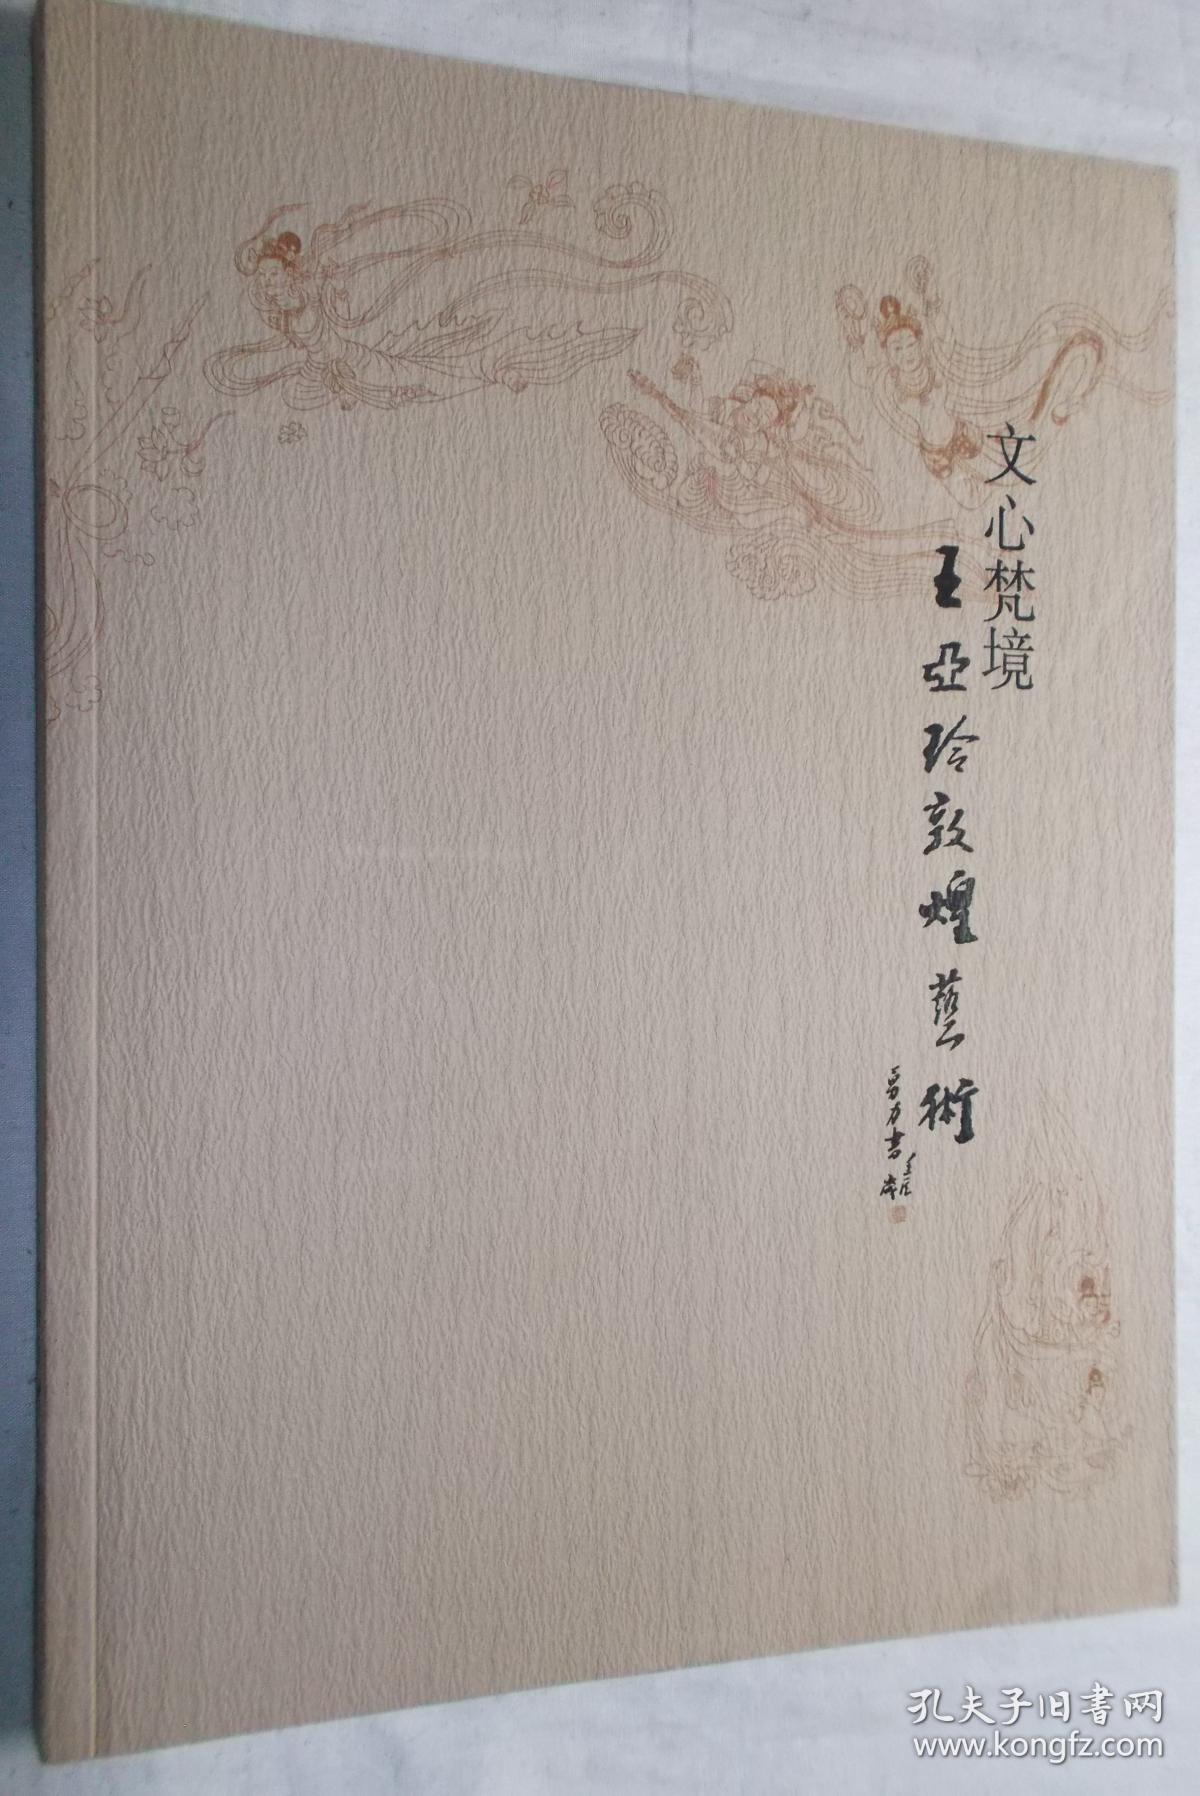 文心梵境
王亞玲敦煌藝術
孔夫子旧書网
www.kongfz.com